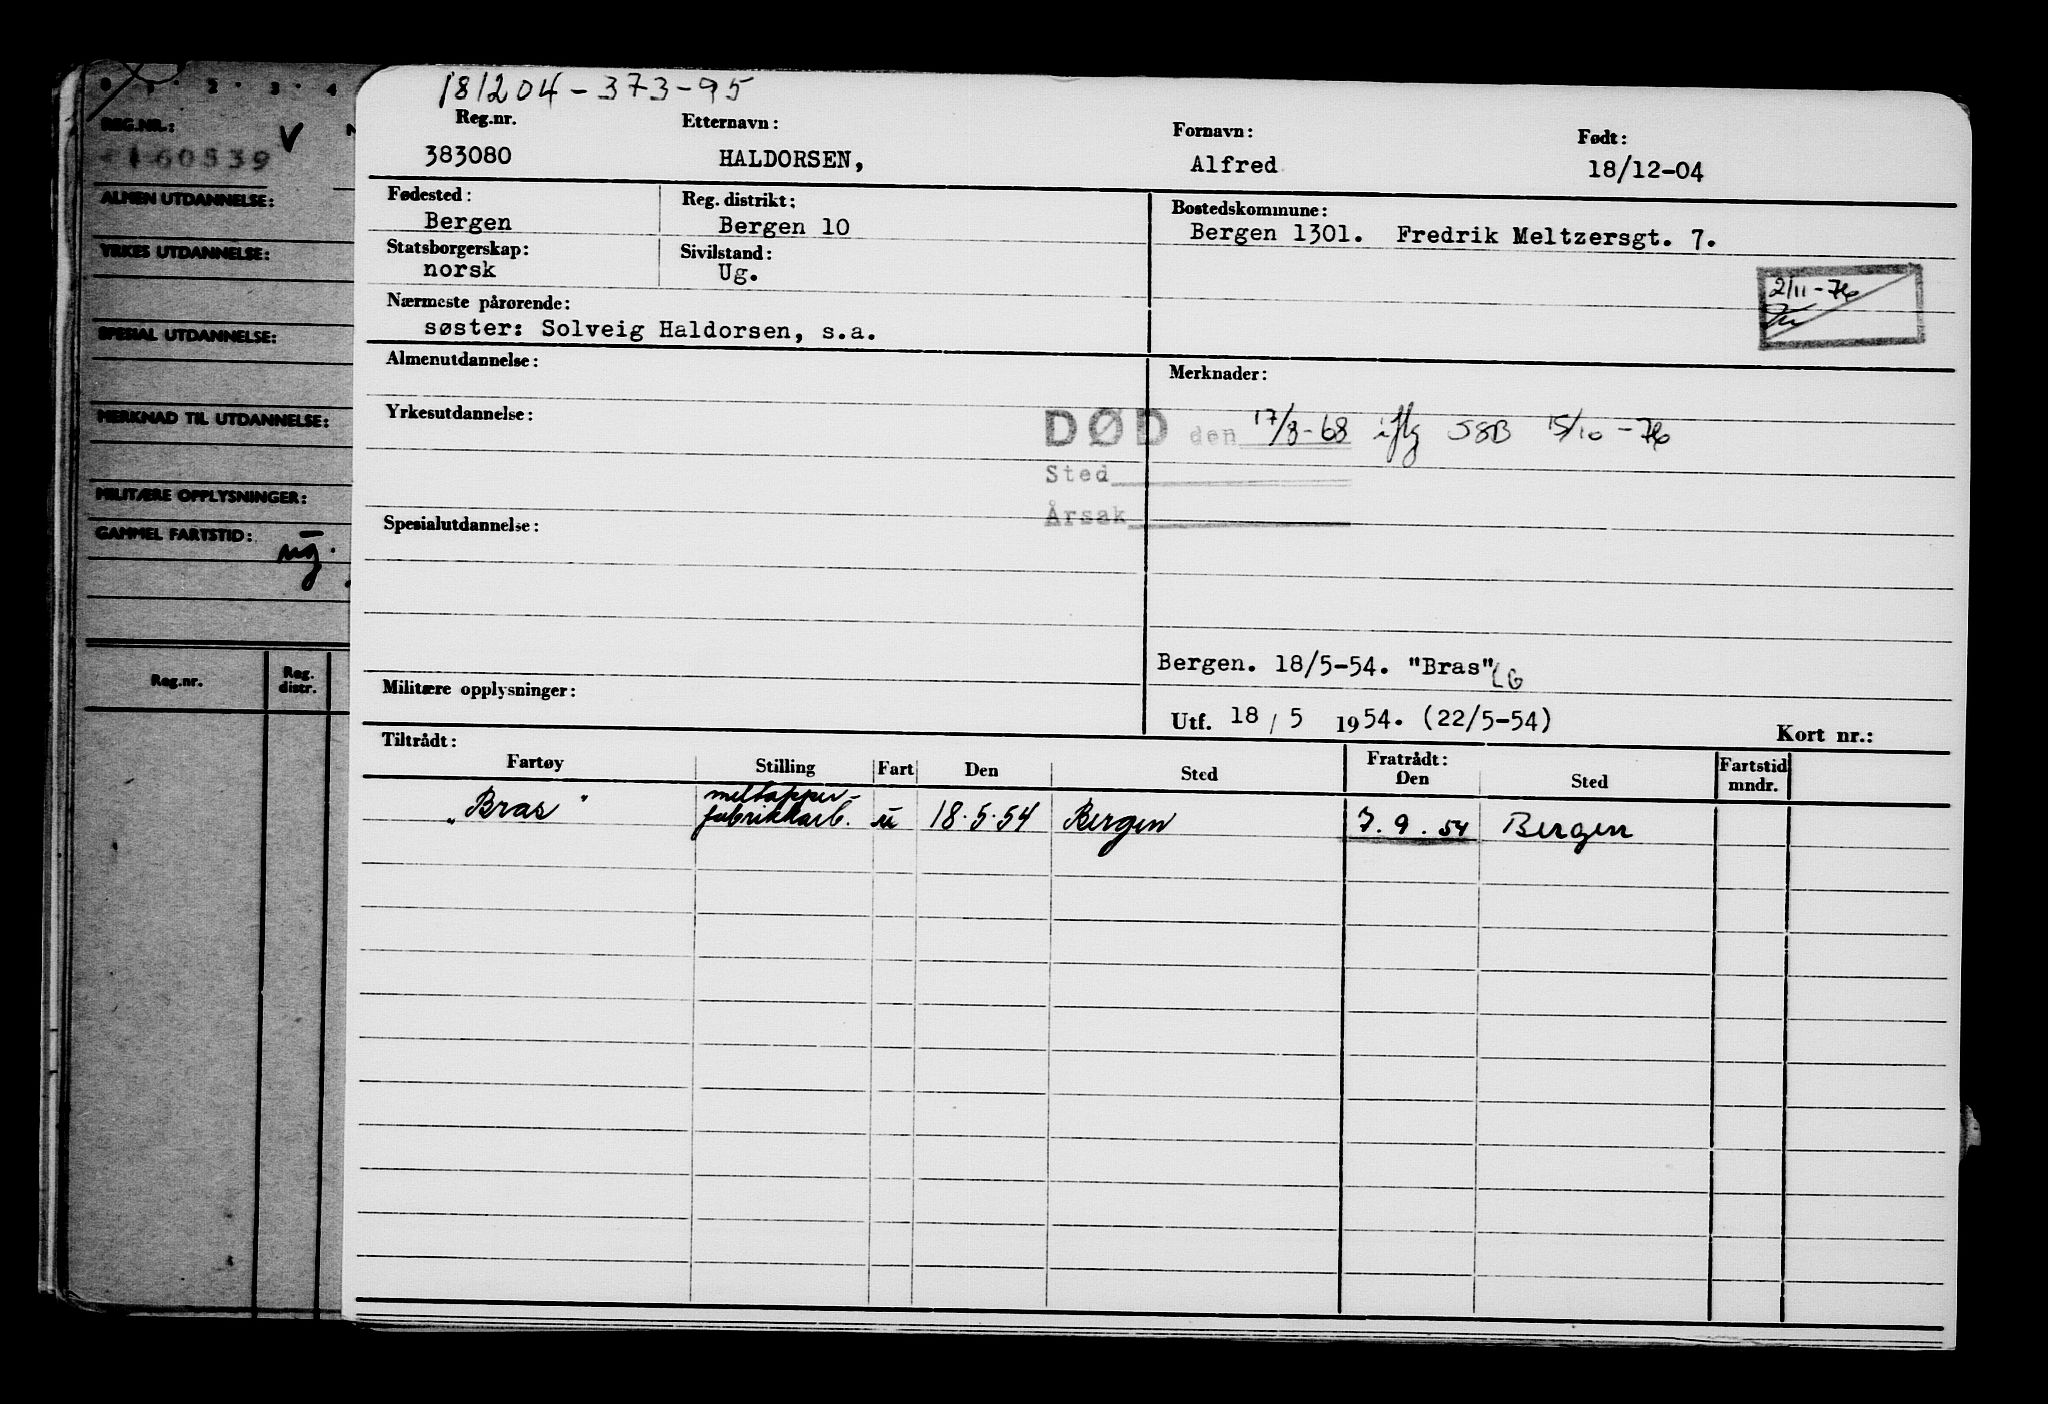 0 · 1 · 2 · 3 · 4
REG.NR.: V
160539
ALMEN UTDANNELSE:
YRKES UTDANNELSE:
SPESIAL UTDANNELSE:
MERKNAD TIL UTDANNELSE:
MILITÆRE OPPLYSNINGER:
GAMMEL FARTSTID:
ug.
Reg.nr. Reg. distr.
181204-373-95
Reg.nr. Etternavn: Fornavn: Født:
383080 HALDORSEN, Alfred 18/12-04
Fødested: Reg. distrikt: Bostedskommune:
Bergen Bergen 10 Bergen 1301. Fredrik Meltzersgt. 7.
Statsborgerskap: Sivilstand:
norsk Ug.
2/11-76
Nærmeste pårørende:
søster: Solveig Haldorsen, s.a.
Almenutdannelse: Merknader:
Yrkesutdannelse:
DØD den 17/8-68 iflg SSB 15/10-76
Sted
Årsak
Spesialutdannelse:
Bergen. 18/5-54. "Bras" LG
Militære opplysninger:
Utf. 18 / 5 1954. (22/5-54) Kort nr.:
Tiltrådt: Fratrådt:
Fartøy Stilling Fart Den Sted Den Sted Fartstid mndr.
„Bras" meltapper-
fabrikkarb. u 18.5.54 Bergen 7.9.54 Bergen